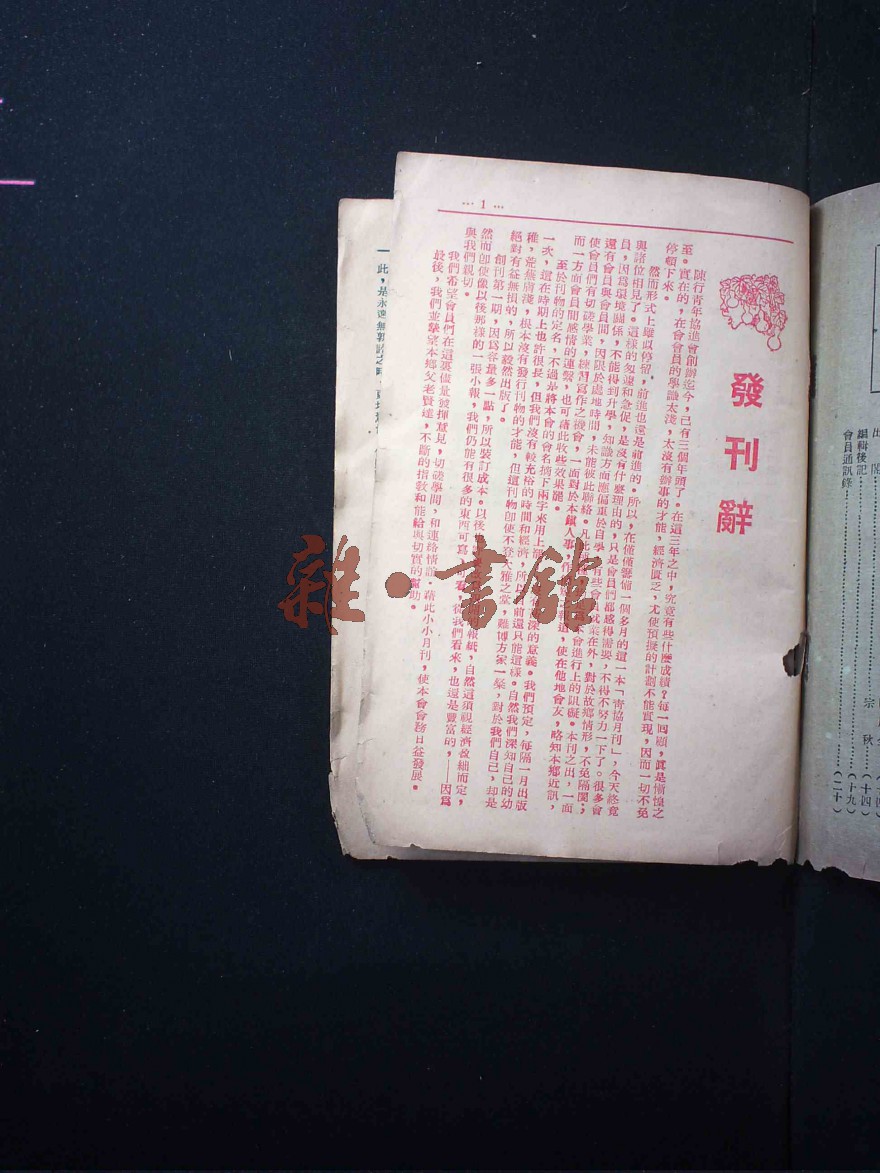 … 1 …
發刊辭
陳行青年協進會創辦迄今，已有三個年頭了。在這三年之中，究竟有些什麼成績？每一回顧，眞是慚惶之
至。實在的，在會會員的學識太淺，太沒有辦事的才能，經濟匱乏，尤使預擬的計劃不能實現，因而一切不免
停頓下來。
然而形式上雖似停留，前進也還是前進的。所以，在僅僅籌備一個多月的這一本「靑協月刊」，今天終竟
與諸位相見了。這樣的匆速和急促，是沒有什麼理由的，只是會員們都感得需要，不得不努力一下了。很多會
員，因爲環境關係，不能得到升學，知識方面應偏重於自學
有些會
就業在外，對於故鄉情形，不免隔閡；
還有會員與會員間，因限於處地時間，未能彼此聯絡。凡此
會進行上的阻礙。本刊之出，一面
使會員們有切磋學業，練習寫作之機會，一面對於本鎭人事，作
道，使在他地會友，略知本鄉近訊，
而一方面會員間感情的連繫，也可藉此收些效果罷。
至於刊物的定名，不過是將本會的會名摘下兩字來用上
深的意義。我們預定，每隔一月出版
一次，這在時期上也許很長，但我們沒有較充裕的時間和經濟，所以
前還只能這樣。自然我們深知自己的幼
稚，荒蕪膚淺，根本沒有發行刊物的才能，但這刊物卽使不登大雅之堂，難博方家一粲，對於我們自己，却是
絕對有益無損的，所以毅然出版了。
創刊第一期，因爲容量多一點，所以裝訂成本。以後
報紙，自然這須視經濟盈絀而定，
然而卽使像以後那樣的一張小報，我們仍能有很多的東西可寫
從我們看來，也還是豐富的，——因爲
與我們親切。
我們希望會員們在這裏儘量發揮意見，切磋學問，和連絡情誼。藉此小小月刊，使本會會務日益發展。
最後，我們並摯望本鄉父老賢達，不斷的指敎和能給與切實的幫助。
此，是永遠無郭
編輯後記
會員通訊錄
宗秋
（十四）
（十九）
（二十）
雜·書館